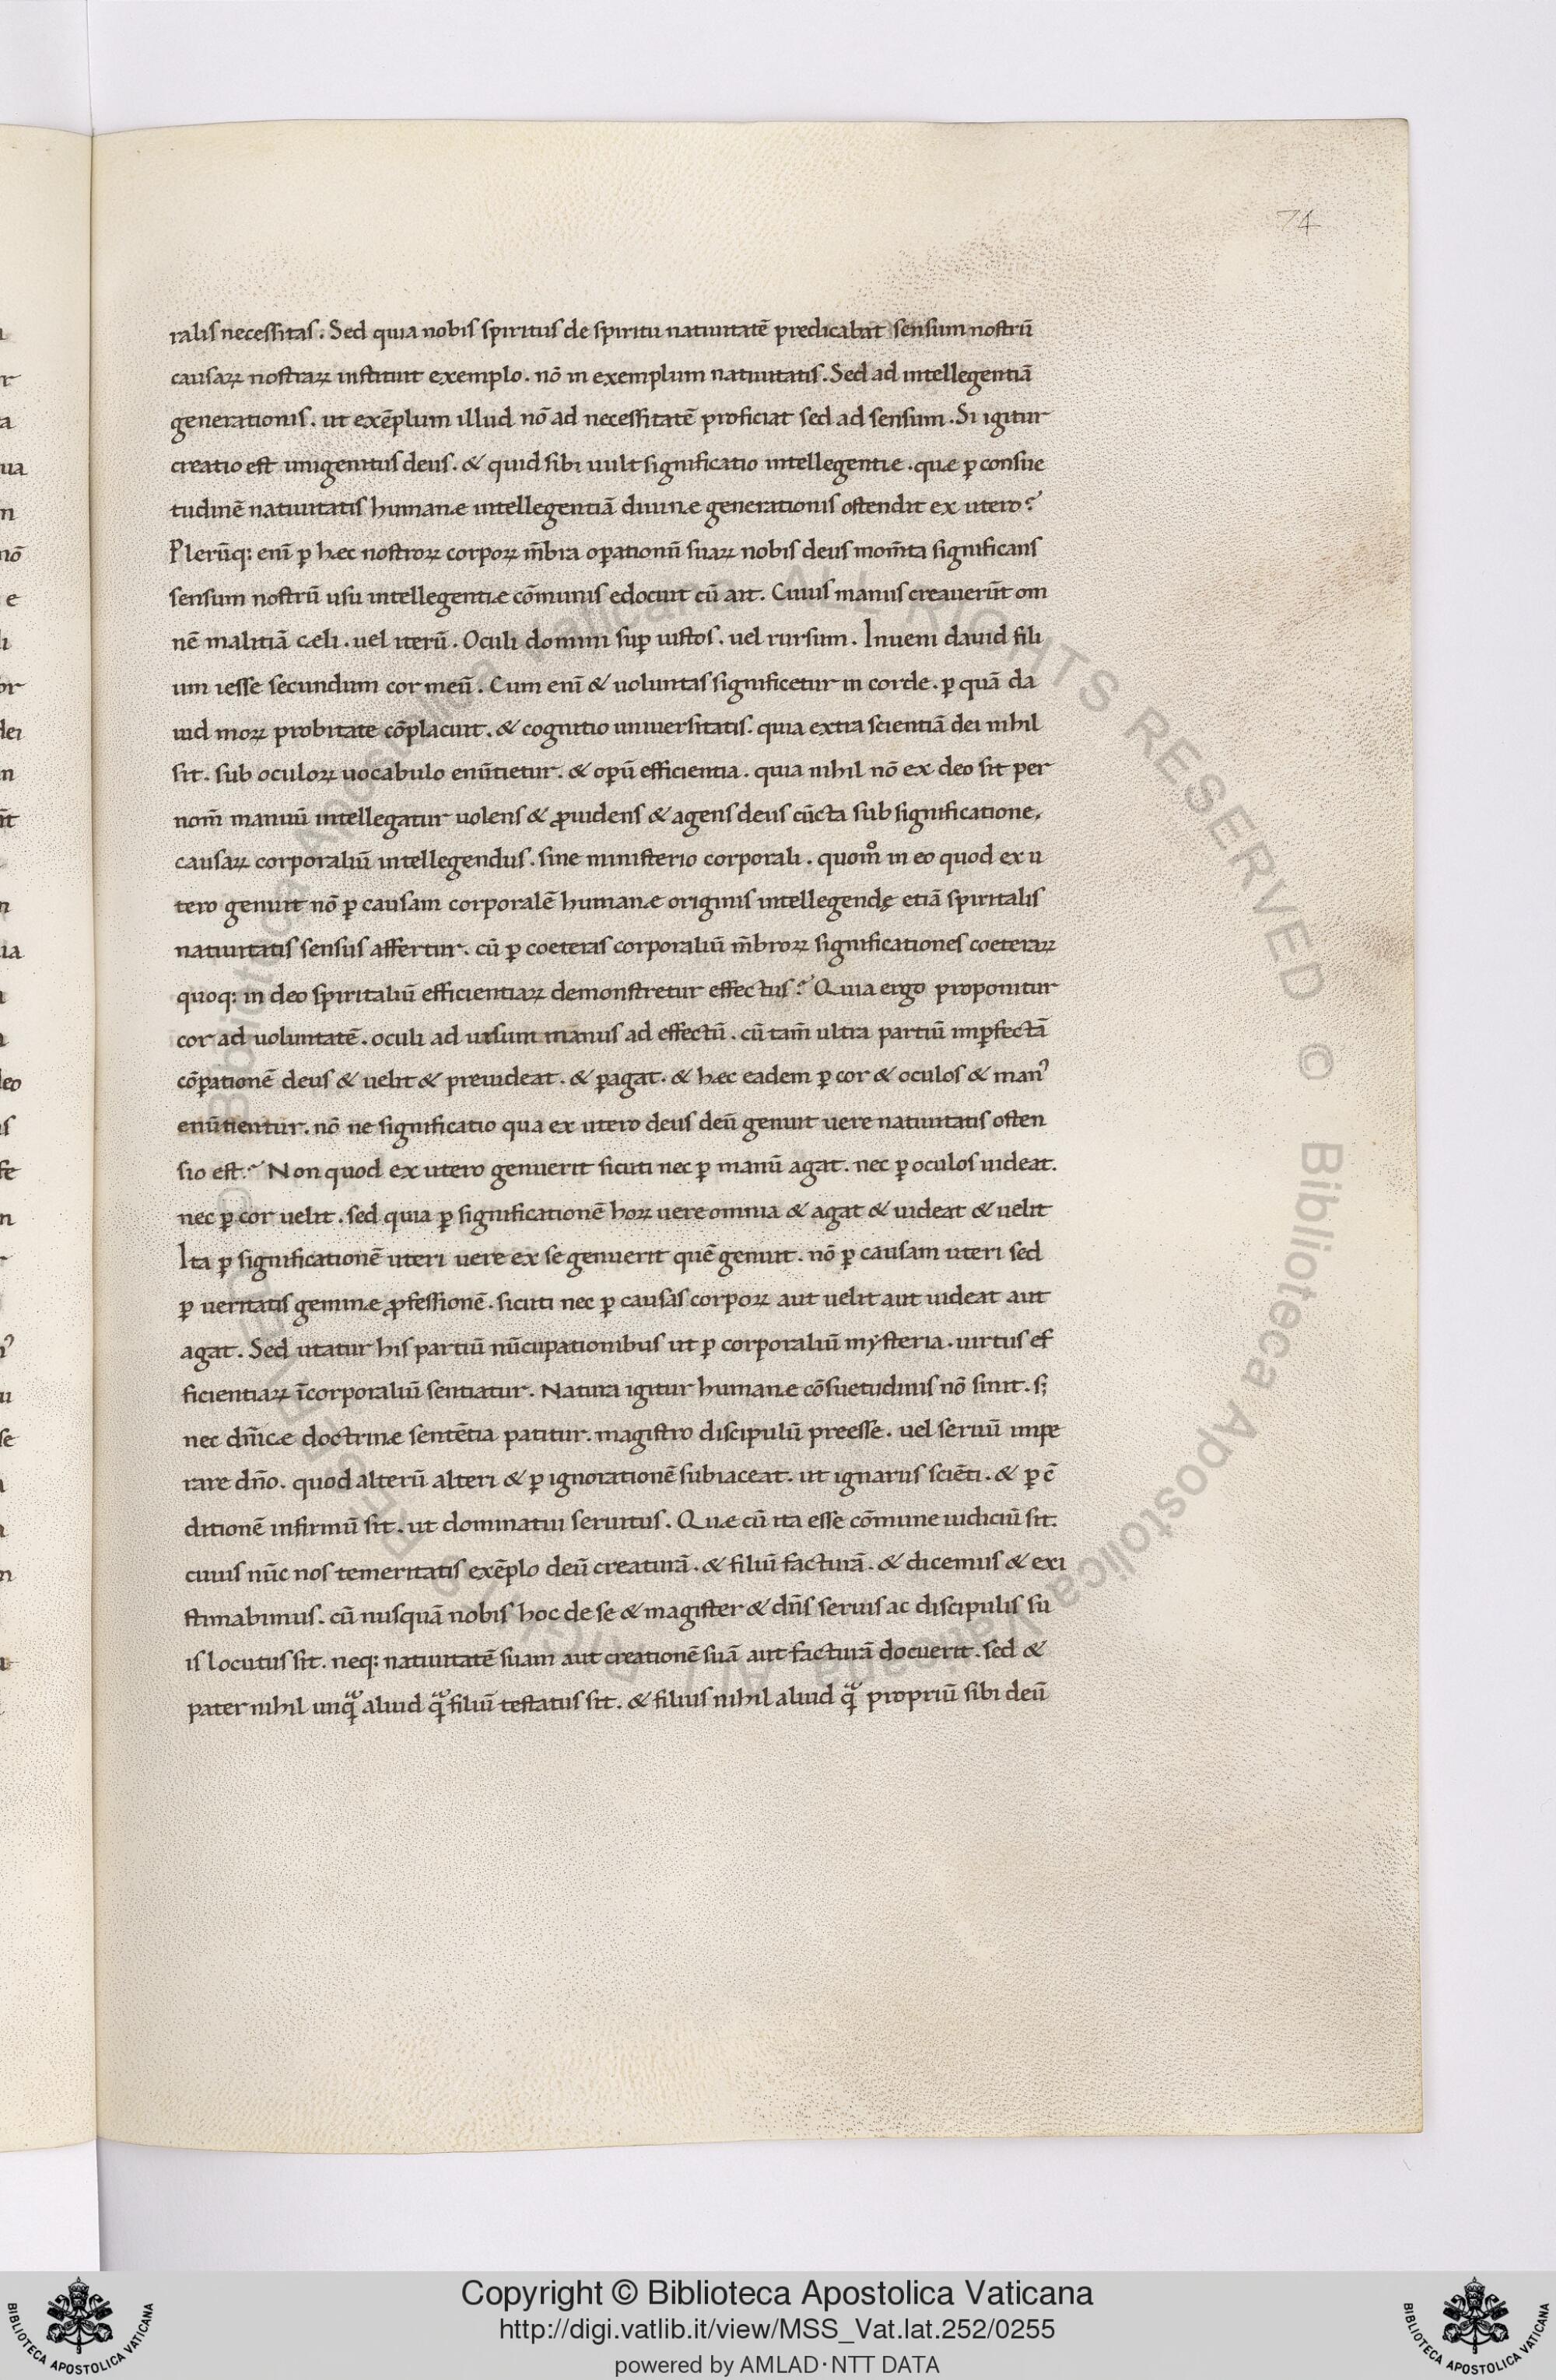 74
ralis necessitas. Sed quia nobis spiritus de spiritu natiuitatē predicabat sensum nostrū
causaꝝ nostraꝝ instituit exemplo. nō in exemplum natiuitatis. Sed ad intellegentiā
generationis. ut exēplum illud nō ad necessitatē proficiat sed ad sensum. Si igitur
creatio est unigenitus deus. & quid sibi uult significatio intellegentiæ. quæ ꝑ consue
tudinē natiuitatis humanæ intellegentiā diuinæ generationis ostendit ex utero?
Plerūq: eni̅ ꝑ hæc nostroꝝ corpoꝝ m̄bra oꝑationū suaꝝ nobis deus mom̄ta significans
sensum nostrū usu intellegentiæ cōmunis edocuit cū ait. Cuius manus creauerūt om
nē malitiā cæli. uel iterū. Oculi domini suꝑ iustos. uel rursum. Inueni dauid fili
um iesse secundum cor meū. Cum eni̅ & uoluntas significetur in corde. ꝑ quā da
uid moꝝ probitate cōplacuit. & cognitio uniuersitatis. quia extra scientiā dei nihil
sit. sub oculoꝝ uocabulo enūtietur. & oꝑū efficientia. quia nihil nō ex deo sit per
nom̄ manuū intellegatur uolens & ꝓuidens & agens deus cūcta sub significatione.
causaꝝ corporaliū intellegendus. sine ministerio corporali. quom̊ in eo quod ex u
tero genuit nō ꝑ causam corporalē humanæ originis intellegendę etiā spiritalis
natiuitatis sensus affertur. cū ꝑ coeteras corporaliū m̄broꝝ significationes coeteraꝝ
quoq: in deo spiritaliū efficientiaꝝ demonstretur effectus? Quia ergo proponitur
cor ad uoluntatē. oculi ad uisum manus ad effectū. cū tam̄ ultra partiū imꝑfectā
cōꝑationē deus & uelit & preuideat. & ꝑagat. & hæc eadem ꝑ cor & oculos & manꝰ
enūtientur. nō ne significatio qua ex utero deus deū genuit uere natiuitatis osten
sio est? Non quod ex utero genuerit sicuti nec ꝑ manū agat. nec ꝑ oculos uideat.
nec ꝑ cor uelit. sed quia ꝑ significationē hoꝝ uere omnia & agat & uideat & uelit
Ita ꝑ significationē uteri uere ex se genuerit quē genuit. nō ꝑ causam uteri sed
ꝑ ueritatis geminæ ꝓfessionē. sicuti nec ꝑ causas corpoꝝ aut uelit aut uideat aut
agat. Sed utatur his partiū nūcupationibus ut ꝑ corporaliū mẏsteria. uirtus ef
ficientiaꝝ i̅corporaliū sentiatur. Natura igitur humanæ cōsuetudinis nō sinit. s;
nec dn̄icæ doctrinæ sentētia patitur. magistro discipulū preesse. uel seruū impe
rare dn̄o. quod alterū alteri & ꝑ ignorationē subiaceat. ut ignarus sciēti. & ꝑ c̄
ditionē infirmū sit. ut dominatui seruitus. Quæ cū ita esse cōmune iudiciū sit.
cuius nūc nos temeritatis exēplo deū creaturā. & filiū facturā. & dicemus & exi
stimabimus. cū nusquā nobis hoc de se & magister & dn̄s seruis ac discipulis su
is locutus sit. neq: natiuitatē suam aut creationē suā aut facturā docuerit. sed &
pater nihil unqͣ aliud qͣ filiū testatus sit. & filius nihil aliud qͣ propriū sibi deū
Copyright © Biblioteca Apostolica Vaticana
http://digi.vatlib.it/view/MSS_Vat.lat.252/0255
powered by AMLAD·NTT DATA